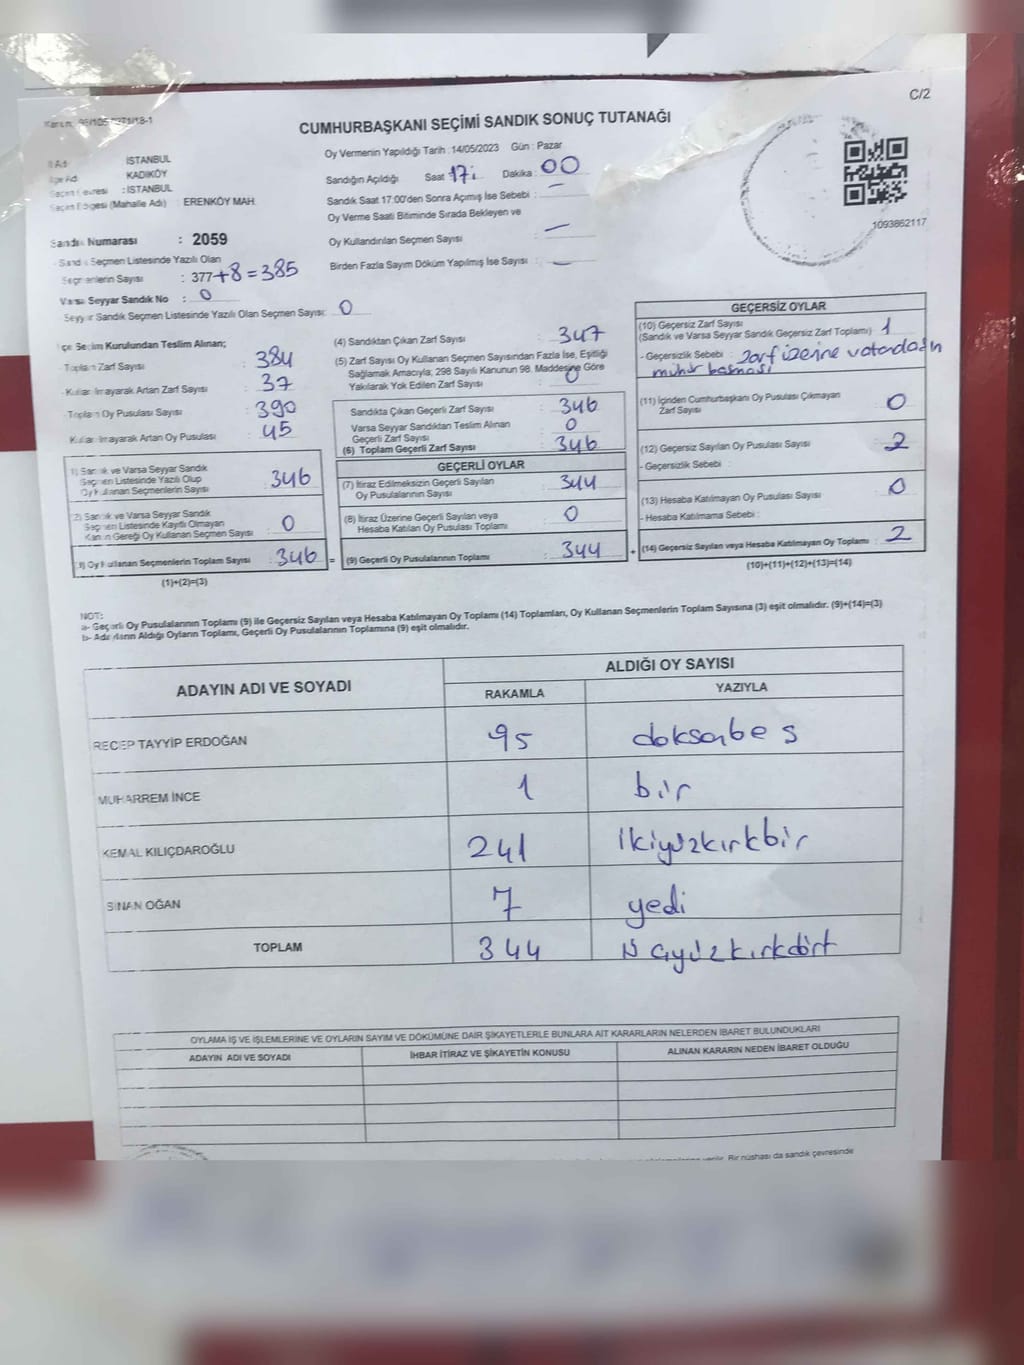 C/2
CUMHURBAŞKANI SEÇİMİ SANDIK SONUÇ TUTANAĞI
İSTANBUL
KADIKÖY
: İSTANBUL
Seçim Bölgesi (Mahalle Adı) : ERENKÖY MAH.
Sandık Numarası : 2059
Sandık Seçmen Listesinde Yazılı Olan
Seçmenlerin Sayısı : 377+8=385
Varsa Seyyar Sandık No : 0
Seyyar Sandık Seçmen Listesinde Yazılı Olan Seçmen Sayısı: 0
Oy Vermenin Yapıldığı Tarih : 14/05/2023 Gün : Pazar
Sandığın Açıldığı Saat : 17: Dakika : 00
Sandık Saat 17:00'den Sonra Açımış İse Sebebi : —
Oy Verme Saati Bitiminde Sırada Bekleyen ve
Oy Kullandırılan Seçmen Sayısı : —
Birden Fazla Sayım Döküm Yapılmış İse Sayısı : —
1093862117
İlçe Seçim Kurulundan Teslim Alınan;
Toplam Zarf Sayısı : 384
Kullanılmayarak Artan Zarf Sayısı : 37
Toplam Oy Pusulası Sayısı : 390
Kullanılmayarak Artan Oy Pusulası : 45
1) Sandık ve Varsa Seyyar Sandık
Seçmen Listesinde Yazılı Olup
Oy Kullanan Seçmenlerin Sayısı 346
(2) Sandık ve Varsa Seyyar Sandık
Seçmen Listesinde Kayıtlı Olmayan
Kanun Gereği Oy Kullanan Seçmen Sayısı : 0
(3) Oy Kullanan Seçmenlerin Toplam Sayısı : 346 =
(1)+(2)=(3)
(4) Sandıktan Çıkan Zarf Sayısı : 347
(5) Zarf Sayısı Oy Kullanan Seçmen Sayısından Fazla İse, Eşitliği
Sağlamak Amacıyla; 298 Sayılı Kanunun 98. Maddesine Göre
Yakılarak Yok Edilen Zarf Sayısı : 0
Sandıkta Çıkan Geçerli Zarf Sayısı : 346
Varsa Seyyar Sandıktan Teslim Alınan
Geçerli Zarf Sayısı : 0
(6) Toplam Geçerli Zarf Sayısı : 346
GEÇERLİ OYLAR
(7) İtiraz Edilmeksizin Geçerli Sayılan
Oy Pusulalarının Sayısı : 344
(8) İtiraz Üzerine Geçerli Sayılan veya
Hesaba Katılan Oy Pusulası Toplamı : 0
(9) Geçerli Oy Pusulalarının Toplamı : 344 +
GEÇERSİZ OYLAR
(10) Geçersiz Zarf Sayısı
(Sandık ve Varsa Seyyar Sandık Geçersiz Zarf Toplamı) : 1
- Geçersizlik Sebebi : zarf üzerine vatandaşın
mühür basması
(11) İçinden Cumhurbaşkanı Oy Pusulası Çıkmayan
Zarf Sayısı : 0
(12) Geçersiz Sayılan Oy Pusulası Sayısı : 2
- Geçersizlik Sebebi :
(13) Hesaba Katılmayan Oy Pusulası Sayısı : 0
- Hesaba Katılmama Sebebi :
(14) Geçersiz Sayılan veya Hesaba Katılmayan Oy Toplamı : 2
(10)+(11)+(12)+(13)=(14)
NOT:
a- Geçerli Oy Pusulalarının Toplamı (9) ile Geçersiz Sayılan veya Hesaba Katılmayan Oy Toplamı (14) Toplamları, Oy Kullanan Seçmenlerin Toplam Sayısına (3) eşit olmalıdır. (9)+(14)=(3)
b- Adayların Aldığı Oyların Toplamı, Geçerli Oy Pusulalarının Toplamına (9) eşit olmalıdır.
ADAYIN ADI VE SOYADI ALDIĞI OY SAYISI
RAKAMLA YAZIYLA
RECEP TAYYİP ERDOĞAN 95 doksanbeş
MUHARREM İNCE 1 bir
KEMAL KILIÇDAROĞLU 241 ikiyüzkırkbir
SİNAN OĞAN 7 yedi
TOPLAM 344 üçyüzkırkdört
OYLAMA İŞ VE İŞLEMLERİNE VE OYLARIN SAYIM VE DÖKÜMÜNE DAİR ŞİKAYETLERLE BUNLARA AİT KARARLARIN NELERDEN İBARET BULUNDUKLARI
ADAYIN ADI VE SOYADI İHBAR İTİRAZ VE ŞİKAYETİN KONUSU ALINAN KARARIN NEDEN İBARET OLDUĞU
verilir. Bir nüshası da sandık çevresinde